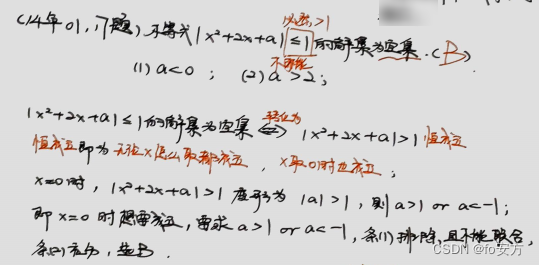 必须>1
(14年01, 17题) 不等式|x²+2x+a|≤1的解集为空集.(B)
不可能
(1) a<0 ; (2) a>2;
转化为
|x²+2x+a|≤1的解集为空集 ⟺ |x²+2x+a|>1 恒成立
恒成立即为无论x怎么取都成立, x取0时也成立;
x=0时, |x²+2x+a|>1 变形为 |a|>1, 则 a>1 or a<-1;
即x=0时想要成立, 要求a>1 or a<-1, 条(1)排除, 且不能联合,
条(2)充分, 选B.
CSDN @fo安方